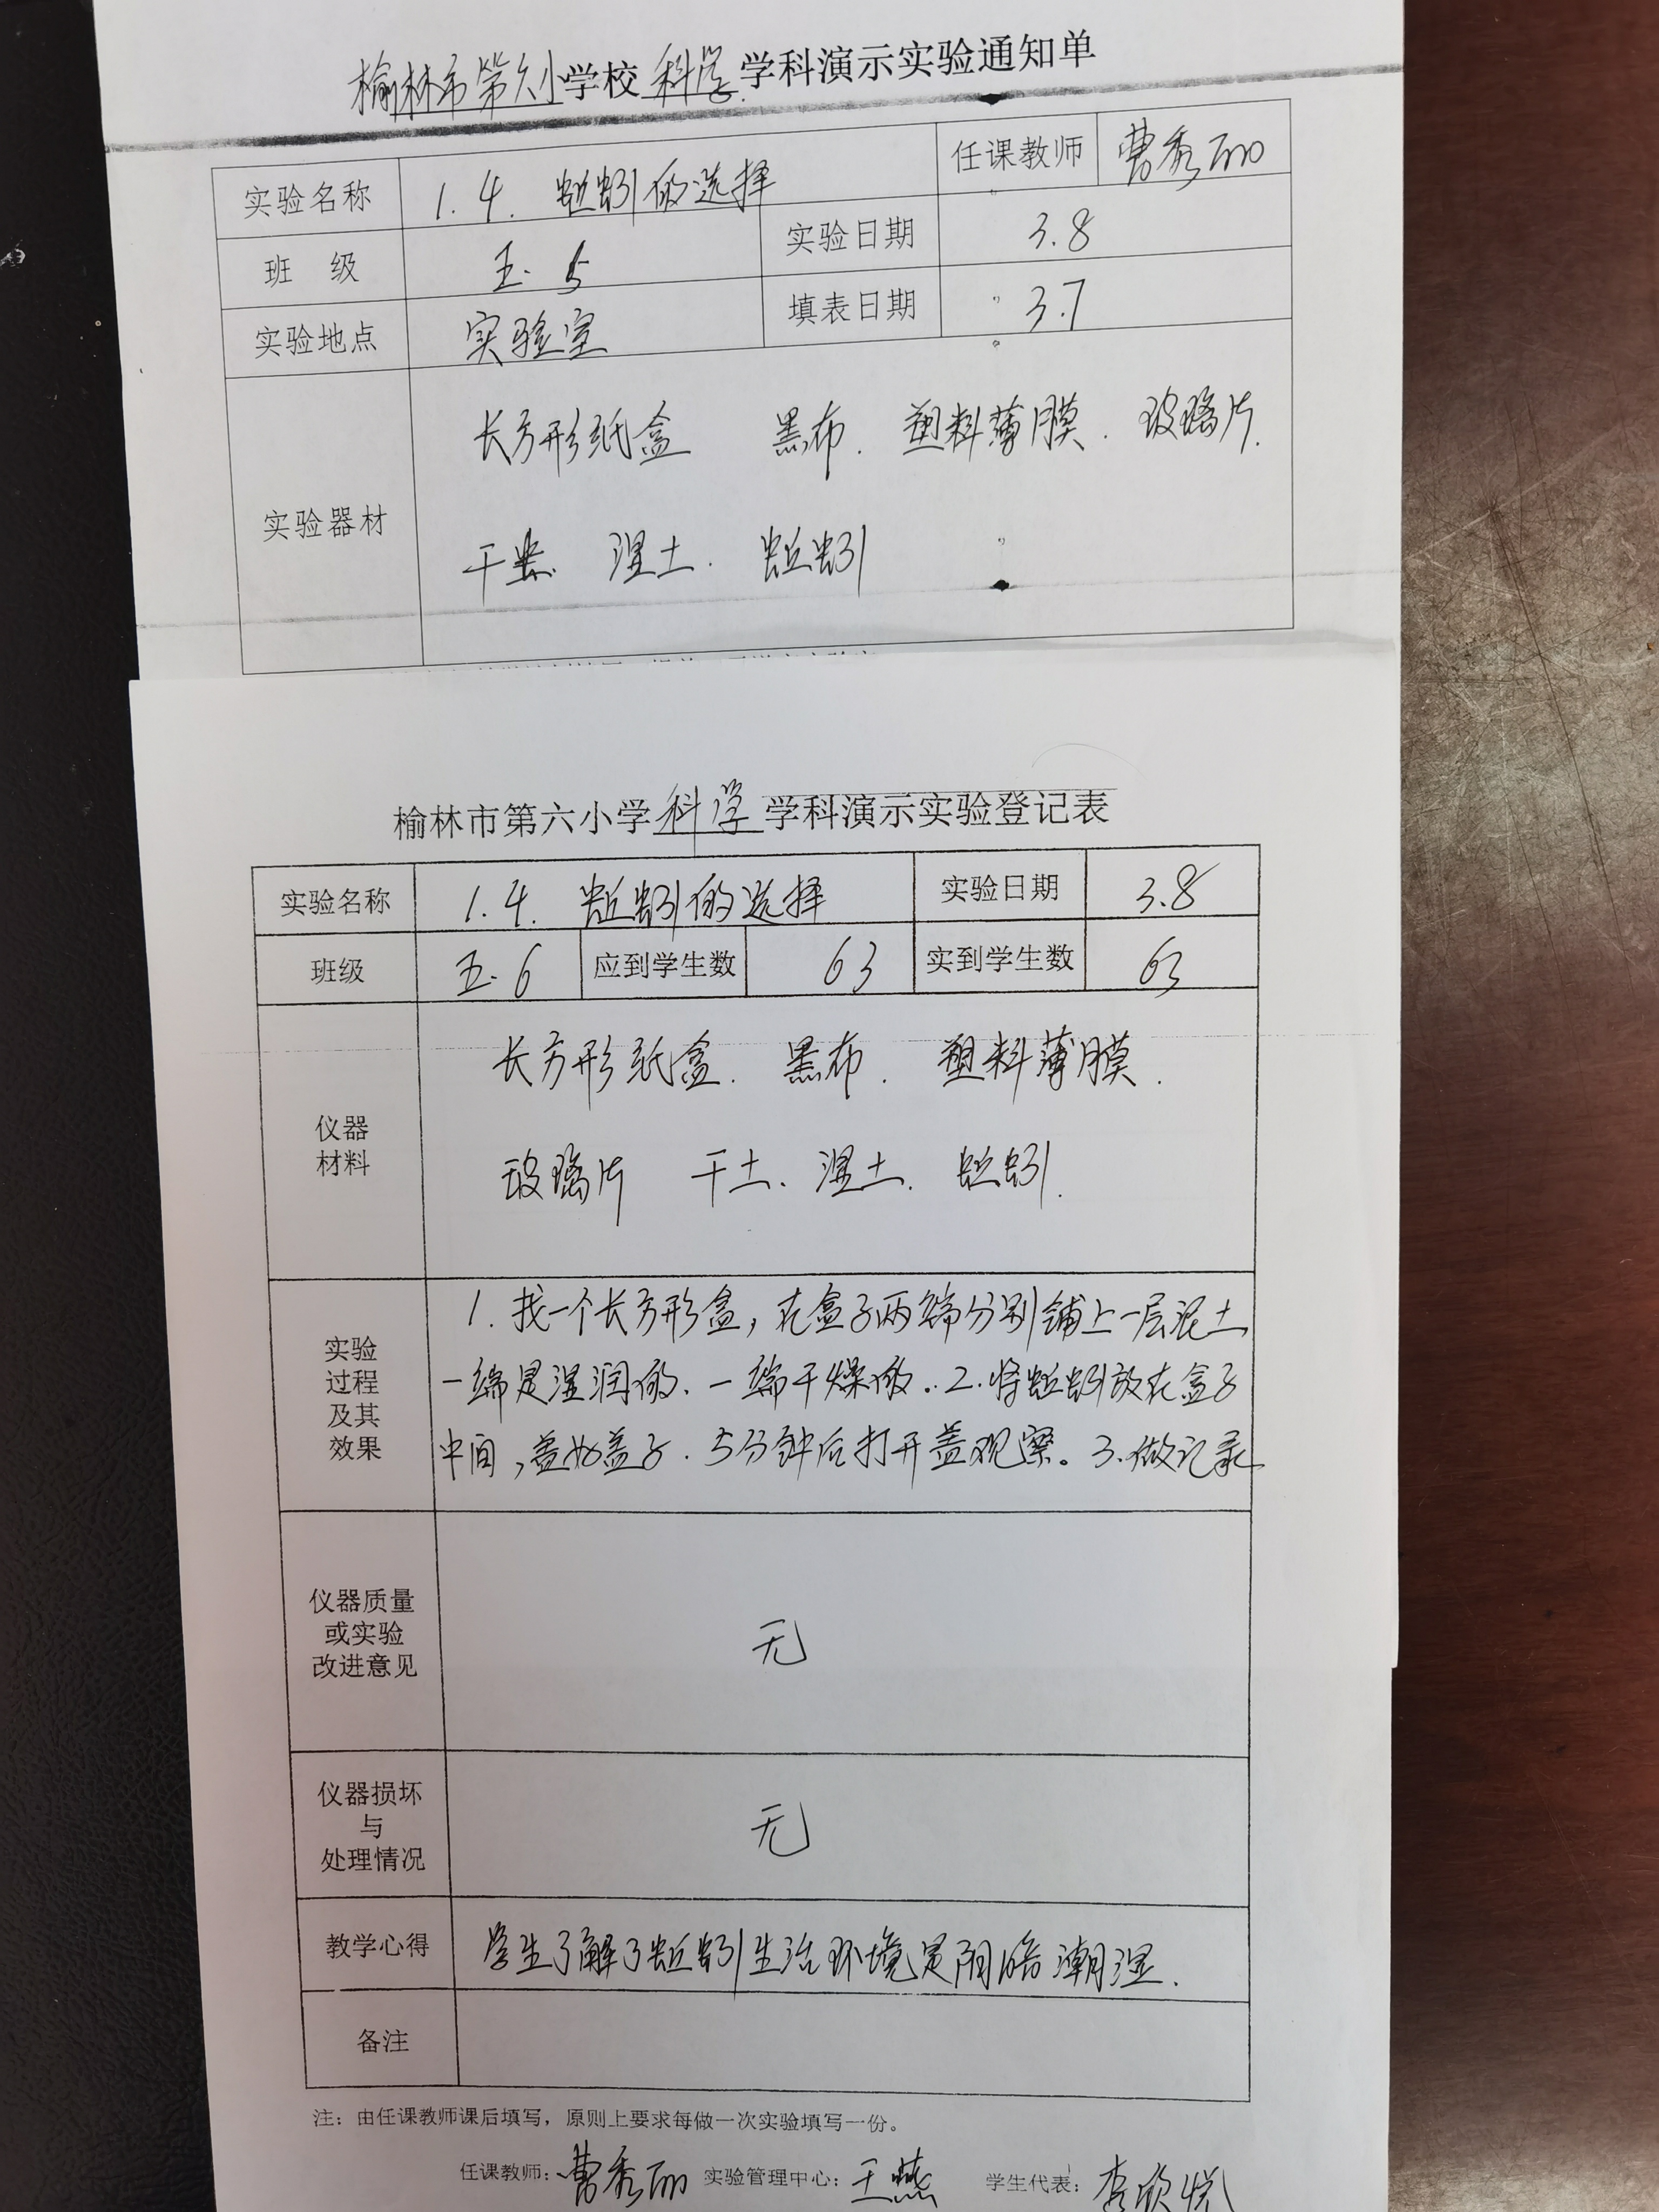 榆林市第六小学校科学学科演示实验通知单
实验名称 1.4. 蚯蚓的选择 任课教师 曹秀丽
班 级 五.5 实验日期 3.8
实验地点 实验室 填表日期 3.7
实验器材
长方形纸盒 黑布. 塑料薄膜. 玻璃片.
干土. 湿土. 蚯蚓
榆林市第六小学科学学科演示实验登记表
实验名称 1.4. 蚯蚓的选择 实验日期 3.8
班级 五.6 应到学生数 63 实到学生数 63
仪器
材料
长方形纸盒. 黑布. 塑料薄膜.
玻璃片 干土、湿土. 蚯蚓.
实验
过程
及其
效果
1. 找一个长方形盒,在盒子两端分别铺上一层泥土,
一端是湿润的、一端干燥的.. 2.将蚯蚓放在盒子
中间,盖好盖子. 5分钟后打开盖观察。3.做记录
仪器质量
或实验
改进意见
无
仪器损坏
与
处理情况
无
教学心得 学生了解了蚯蚓生活环境是阴暗潮湿.
备注
注：由任课教师课后填写，原则上要求每做一次实验填写一份。
任课教师：曹秀丽 实验管理中心：王燕 学生代表：李欣悦